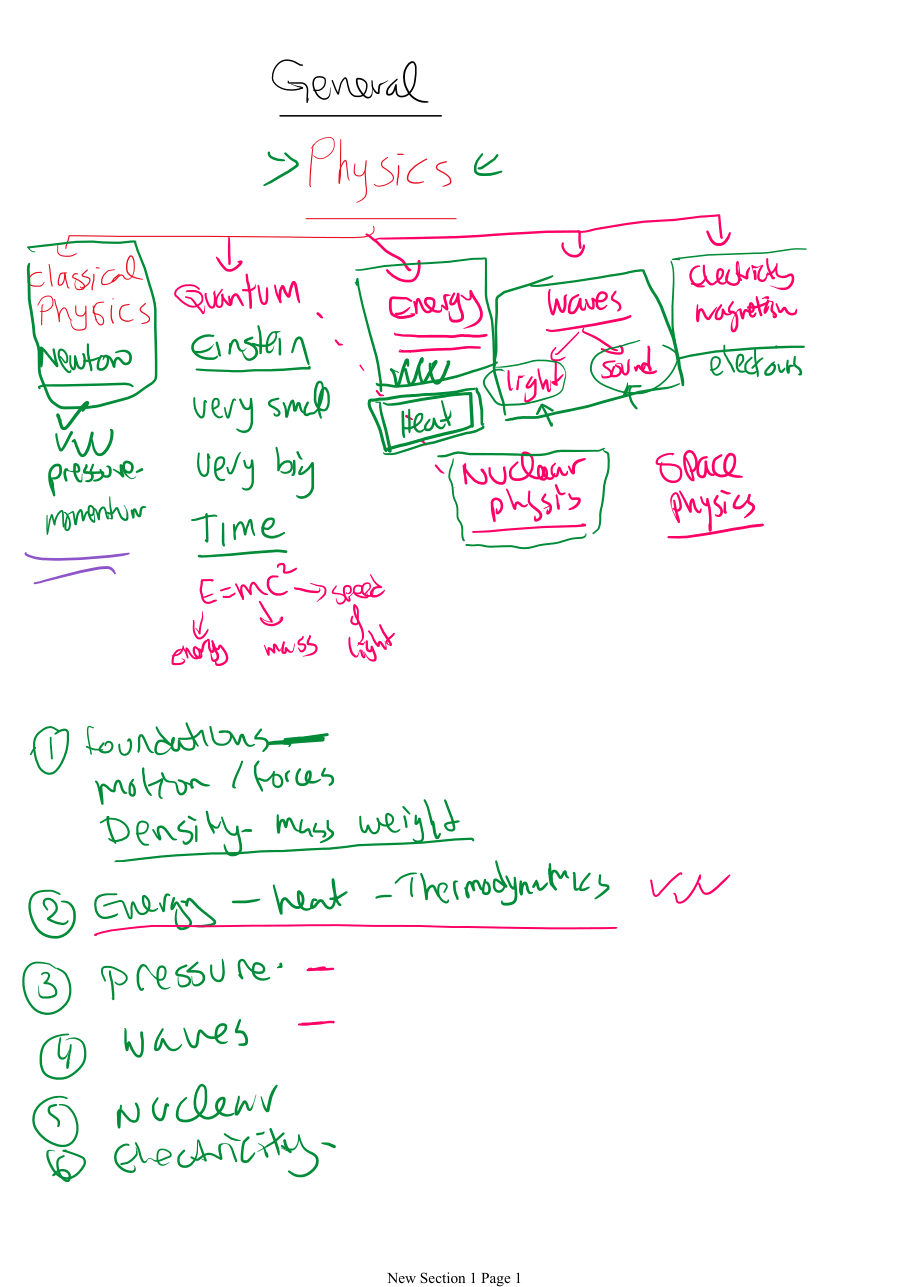 General
Physics
Classical
Physics
Newton
pressure-
momentum
Quantum
Einstein
very small
very big
Time
E=mc²→speed
of
light
energy
mass
Energy
Heat
waves
light
sound
Electricity
magnetism
Nuclear
physis
Space
physics
1 foundations
motion / forces
Density- mass weight
2 Energy - heat - Thermodynamics
3 pressure.
4 waves
5 Nuclear
6 electricity-
New Section 1 Page 1